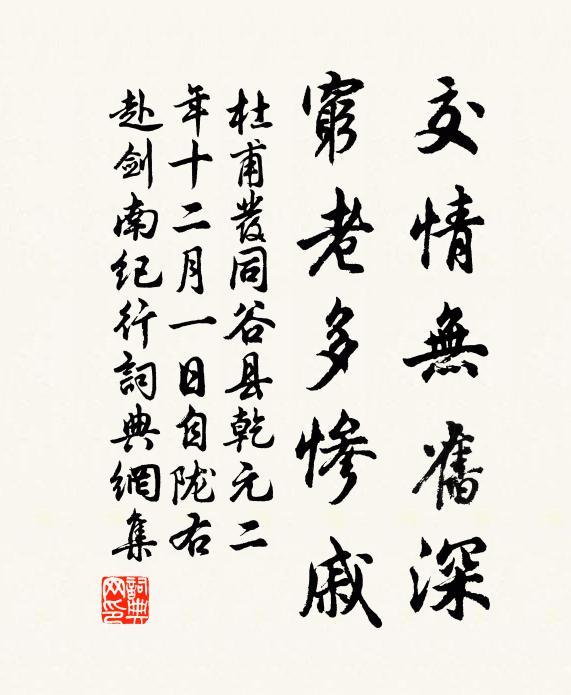 交情無舊深
窮老多慘戚
杜甫發同谷县乾元二
年十二月一日自陇右
赴劍南纪行詞典網集
詞典
网印